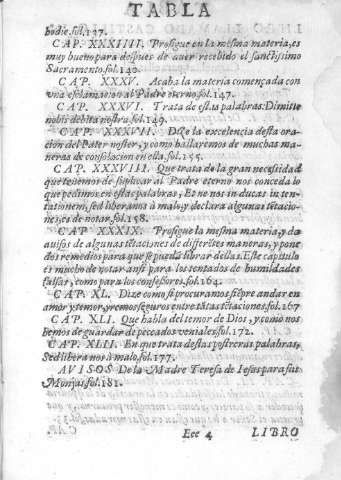 TABLA
hodie.fol.137.
CAP. XXXIIII. Prosigue en la mesma materia, es
muy bueno para despues de auer recebido el sanctissimo
Sacramento.fol.142.
CAP. XXXV. Acaba la materia començada con
vna esclamacion al Padre eterno.fol.147.
CAP. XXXVI. Trata de estas palabras: Dimitte
nobis debita nostra.fol.149.
CAP. XXXVII. Dize la excelencia desta ora
cion del Pater noster, y como hallaremos de muchas ma
neras de consolacion en ella.fol.155.
CAP. XXXVIII. Que trata de la gran necessidad
que tenemos de suplicar al Padre eterno nos conceda lo
que pedimos en estas palabras, Et ne nos inducas in ten-
tationem, sed libera nos à malo, y declara algunas tẽtacio-
nes, es de notar.fol.158.
CAP. XXXIX. Prosigue la mesma materia, y da
auisos de algunas tẽtaciones de diferẽtes maneras, y pone
dos remedios para que se pueda librar dellas. Este capitulo
es mucho de notar ansi para los tentados de humildades
falsas, como para los confessores.fol.164.
CAP. XL. Dize como si procuramos siẽpre andar en
amor y temor, yremos seguros entre tãtas tẽtaciones.fol.167
CAP. XLI. Que habla del temor de Dios, y como nos
hemos de guardar de peccados veniales.fol.172.
CAP. XLII. En que trata destas postreras palabras,
Sed libera nos à malo.fol.177.
AVISOS De la Madre Teresa de Iesus para sus
Monjas.fol.181.
Eee 4 LIBRO